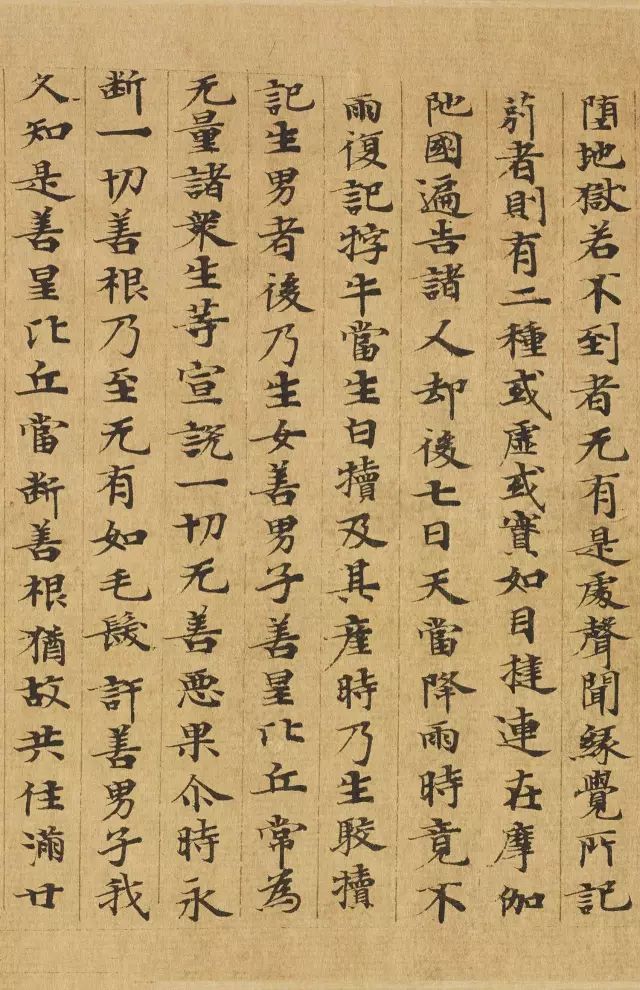 堕地獄若不到者无有是處聲聞緣覺所記
莂者則有二種或虛或實如目揵連在摩伽
陁國遍告諸人却後七日天當降雨時竟不
雨復記牸牛當生白犢及其産時乃生駮犢
記生男者後乃生女善男子善星比丘常為
无量諸衆生等宣說一切无善惡果尒時永
断一切善根乃至无有如毛髮許善男子我
久知是善星比丘當断善根猶故共住滿廿